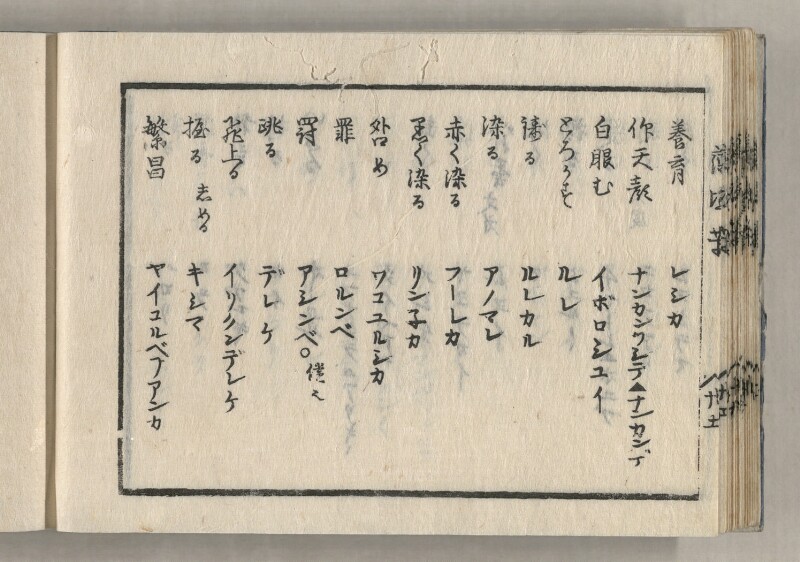 養育 レシカ
作天顔 ナンカンワレデ▲ナンカンデ
白眼む イボロシユイ
とろかす ルレ
鋳る ルレカル
染る アノマレ
赤く染る フーレカ
黒く染る リン子カ
咎め ワコユルシカ
罪 ロルンベ
罰 アシンベ〇償也
跳る デレケ
飛上る イリクンデレケ
握る 志める キシマ
繁昌 ヤイコルベアアンカ